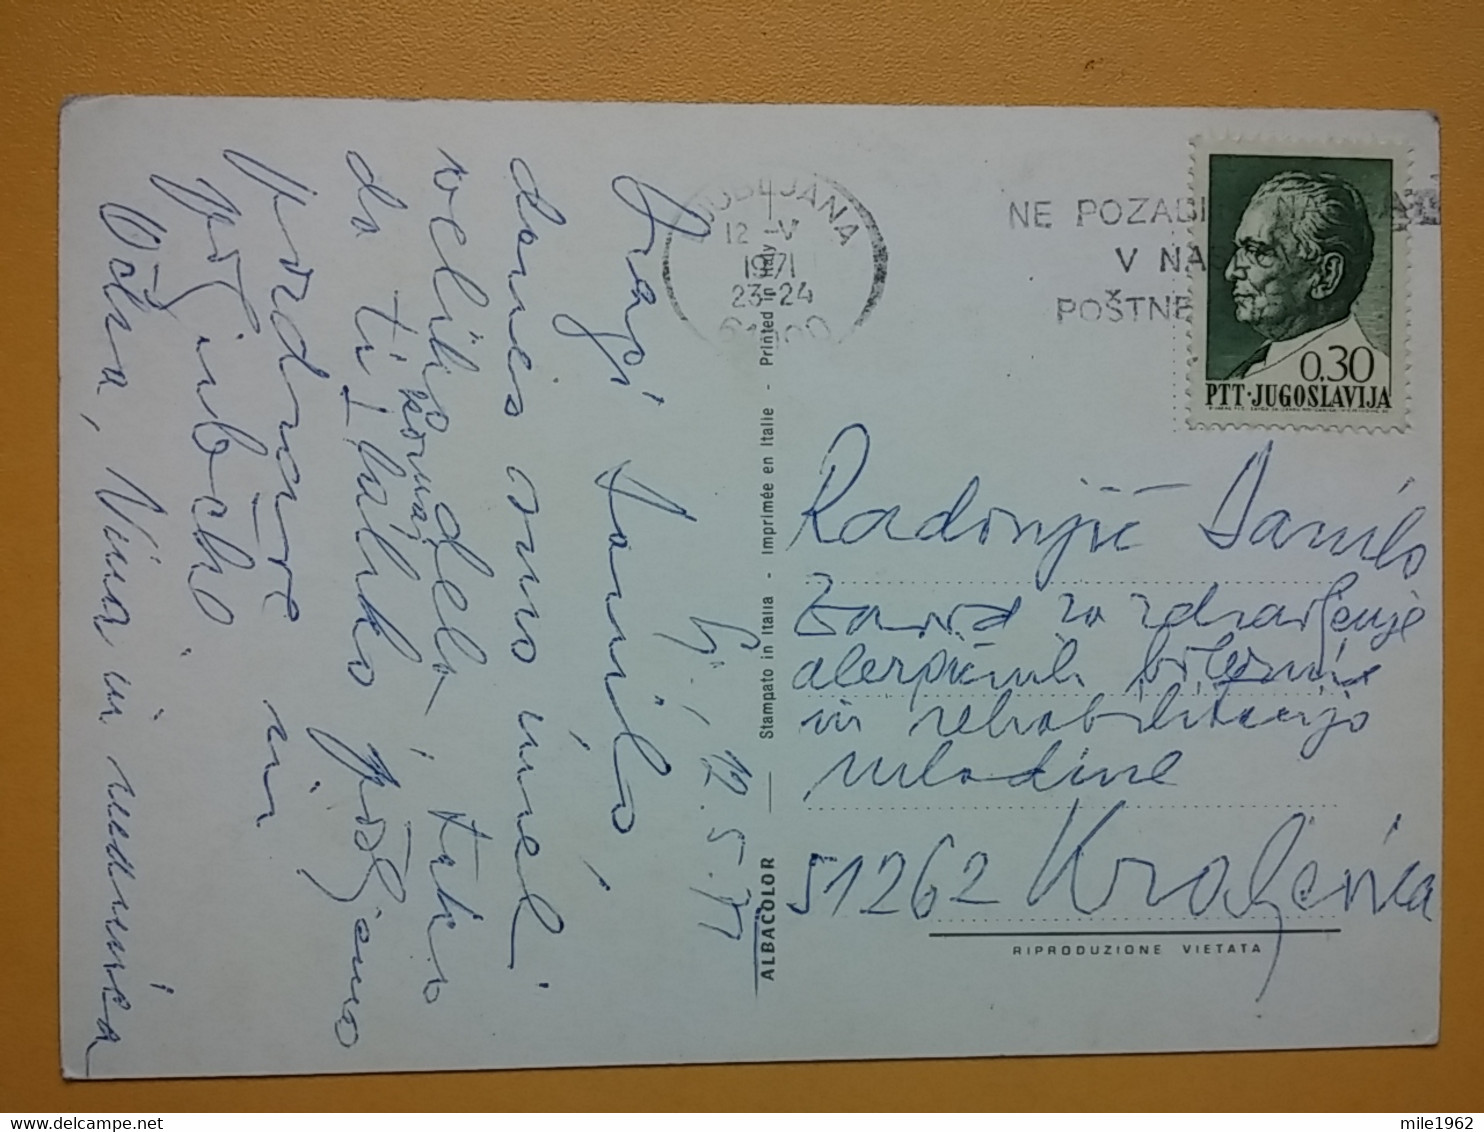 Lj., 12.5.71
Dragi Danilo,
danes smo imeli
veliko dela, tako
da ti komaj
lahko pošljemo
pozdrave in
poljubčke.
Očka, Nina in mamica
LJUBLJANA
12 -V
1971
23-24
61000
NE POZABI NA
V NA
POŠTNE
0,30
PTT·JUGOSLAVIJA
ALBACOLOR — Stampato in Italia - Imprimée en Italie - Printed in Italy
Radonjić Danilo
Zavod za zdravljenje
alergičnih bolezni
in rehabilitacijo
mladine
51262 Kraljevica
RIPRODUZIONE VIETATA
mile1962